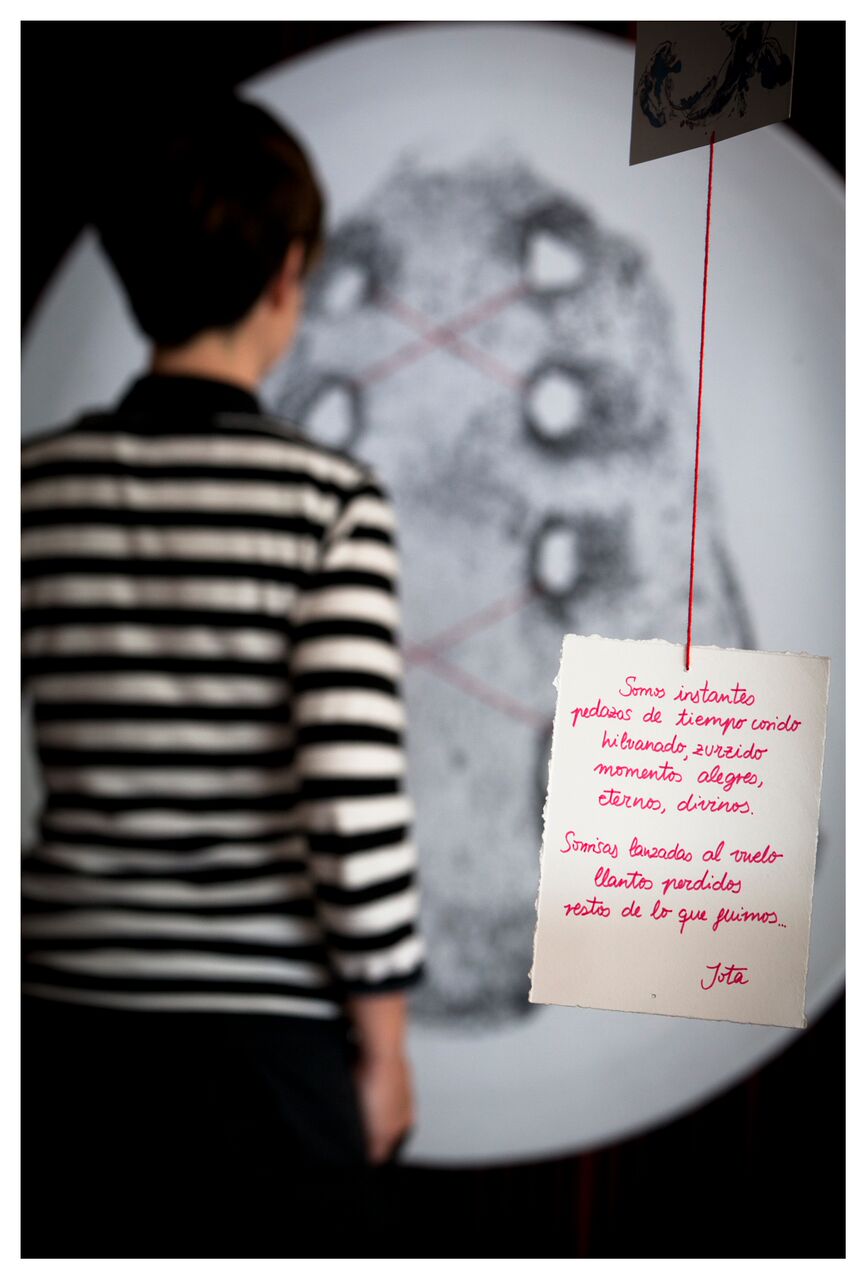 Somos instantes
pedazos de tiempo cosido
hilvanado, zurzido
momentos alegres,
eternos, divinos.
Sonrisas lanzadas al vuelo
llantos perdidos
restos de lo que fuimos...
Jota